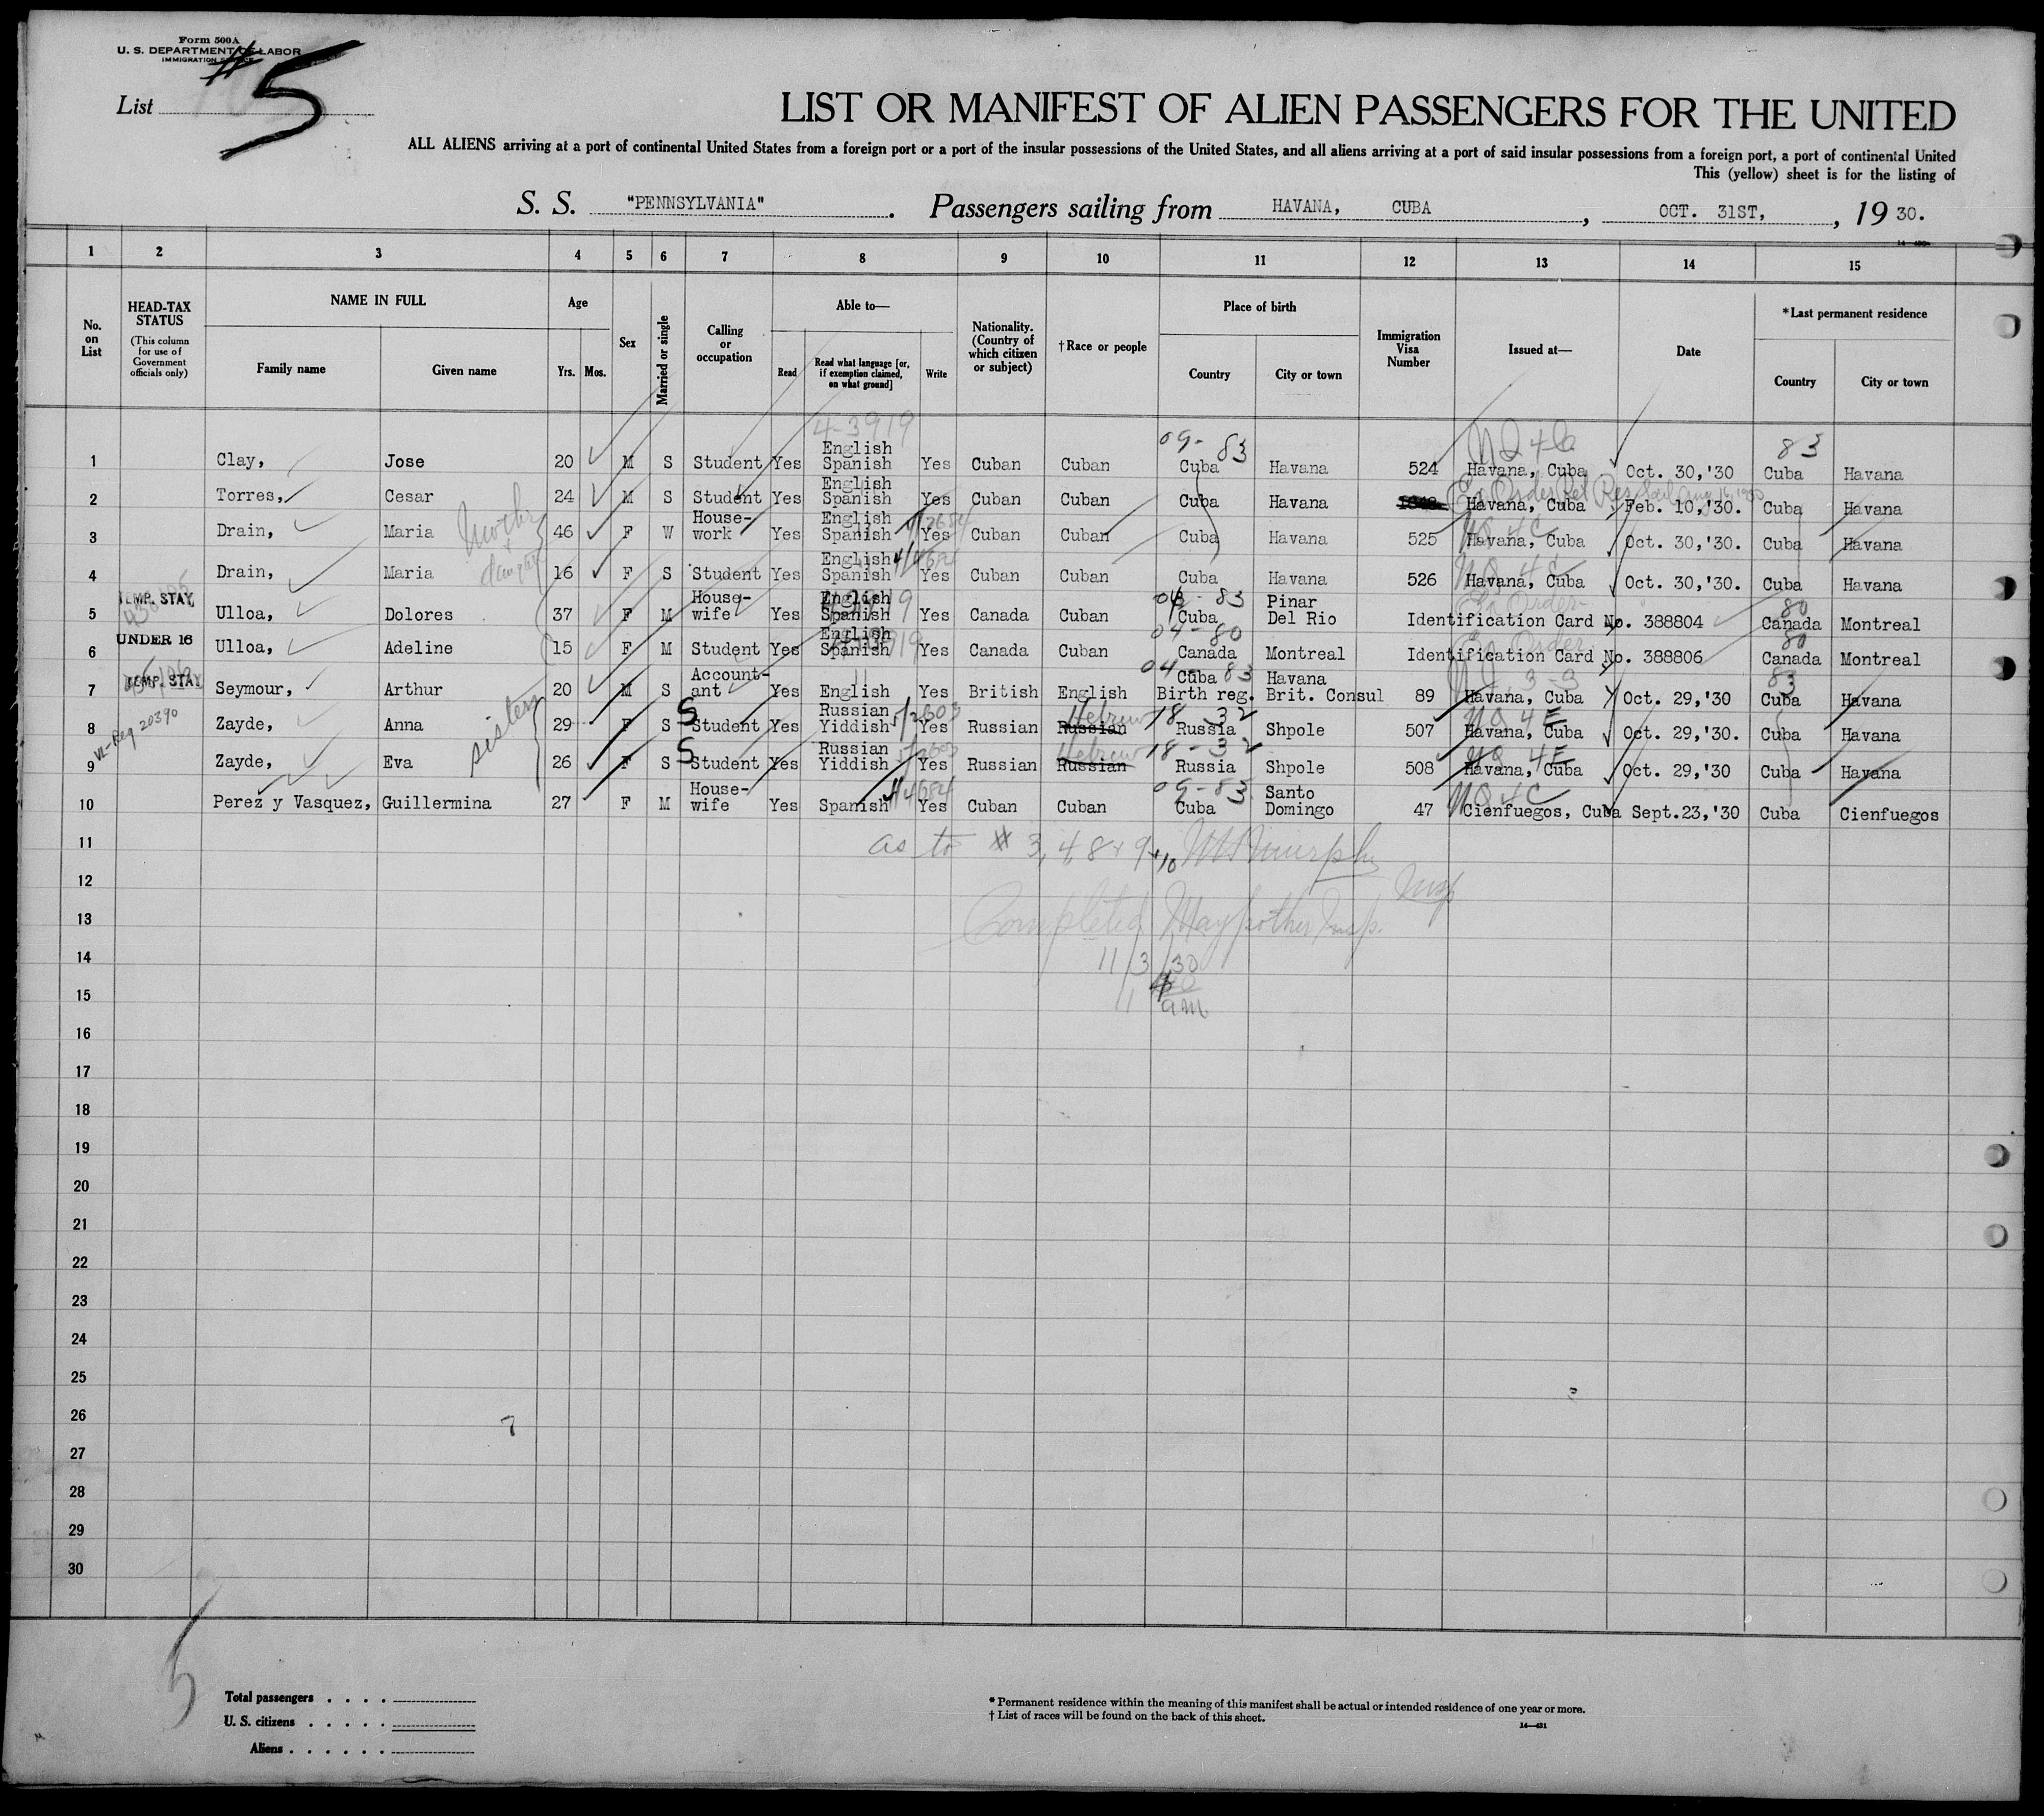 Form 500A
U. S. DEPARTMENT OF LABOR
IMMIGRATION SERVICE
List #5
LIST OR MANIFEST OF ALIEN PASSENGERS FOR THE UNITED
ALL ALIENS arriving at a port of continental United States from a foreign port or a port of the insular possessions of the United States, and all aliens arriving at a port of said insular possessions from a foreign port, a port of continental United
This (yellow) sheet is for the listing of
S. S. "PENNSYLVANIA" . Passengers sailing from HAVANA, CUBA , OCT. 31ST, , 19 30.
1 2 3 4 5 6 7 8 9 10 11 12 13 14 15
No. on List
HEAD-TAX STATUS (This column for use of Government officials only)
NAME IN FULL
Family name Given name
Age
Yrs. Mos.
Sex
Married or single
Calling or occupation
Able to—
Read Read what language [or, if exemption claimed, on what ground] Write
Nationality. (Country of which citizen or subject)
†Race or people
Place of birth
Country City or town
Immigration Visa Number
Issued at—
Date
*Last permanent residence
Country City or town
4-3919 09-83 NQ 4-C 83
1 Clay, Jose 20 M S Student Yes English Spanish Yes Cuban Cuban Cuba Havana 524 Havana, Cuba Oct. 30,'30 Cuba Havana
2 Torres, Cesar 24 M S Student Yes English Spanish Yes Cuban Cuban Cuba Havana Havana, Cuba Feb. 10,'30. Cuba Havana
3 Drain, Maria 46 F W House-work Yes English Spanish Yes Cuban Cuban Cuba Havana 525 Havana, Cuba Oct. 30,'30. Cuba Havana
Mother & daughter
NQ 4C
4 Drain, Maria 16 F S Student Yes English Spanish Yes Cuban Cuban Cuba Havana 526 Havana, Cuba Oct. 30,'30. Cuba Havana
NQ 4C
TEMP. STAY
5 Ulloa, Dolores 37 F M House-wife Yes English Spanish Yes Canada Cuban Cuba Pinar Del Rio Identification Card No. 388804 Canada Montreal
Ex Order 80
UNDER 16
6 Ulloa, Adeline 15 F M Student Yes English Spanish Yes Canada Cuban Canada Montreal Identification Card No. 388806 Canada Montreal
04-80 Ex Order 80
TEMP. STAY
7 Seymour, Arthur 20 M S Account-ant Yes English Yes British English Cuba Havana Birth reg. Brit. Consul 89 Havana, Cuba Oct. 29,'30 Cuba Havana
04 83 3-3 83
8 Zayde, Anna 29 F S Student Yes Russian Yiddish Yes Russian Russian Hebrew Russia Shpole 507 Havana, Cuba Oct. 29,'30. Cuba Havana
sisters S 18-32 NQ 4E
9 Zayde, Eva 26 F S Student Yes Russian Yiddish Yes Russian Russian Hebrew Russia Shpole 508 Havana, Cuba Oct. 29,'30 Cuba Havana
S 18-32 NQ 4E
10 Perez y Vasquez, Guillermina 27 F M House-wife Yes Spanish Yes Cuban Cuban Cuba Santo Domingo 47 Cienfuegos, Cuba Sept.23,'30 Cuba Cienfuegos
09-83 NQ 4C
11
as to # 3, 4 8 + 9 + 10 Murphy
12
Insp
13
Completed Insp.
14
11/3/30
15
16
17
18
19
20
21
22
23
24
25
26
7
27
28
29
30
5
Total passengers . . . .
U. S. citizens . . . . .
Aliens . . . . . .
* Permanent residence within the meaning of this manifest shall be actual or intended residence of one year or more.
† List of races will be found on the back of this sheet.